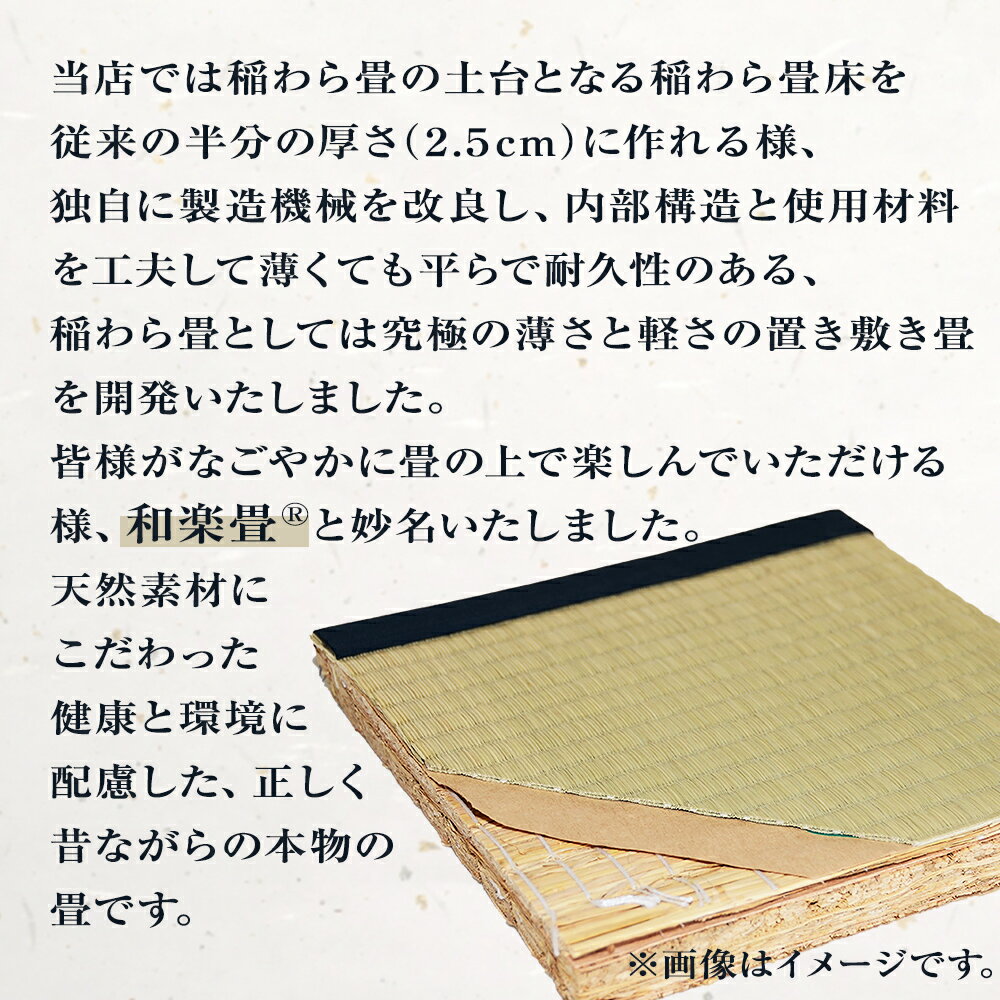 当店では稲わら畳の土台となる稲わら畳床を
従来の半分の厚さ(2.5cm)に作れる様、
独自に製造機械を改良し、内部構造と使用材料
を工夫して薄くても平らで耐久性のある、
稲わら畳としては究極の薄さと軽さの置き敷き畳
を開発いたしました。
皆様がなごやかに畳の上で楽しんでいただける
様、和楽畳®と妙名いたしました。
天然素材に
こだわった
健康と環境に
配慮した、正しく
昔ながらの本物の
畳です。
※画像はイメージです。